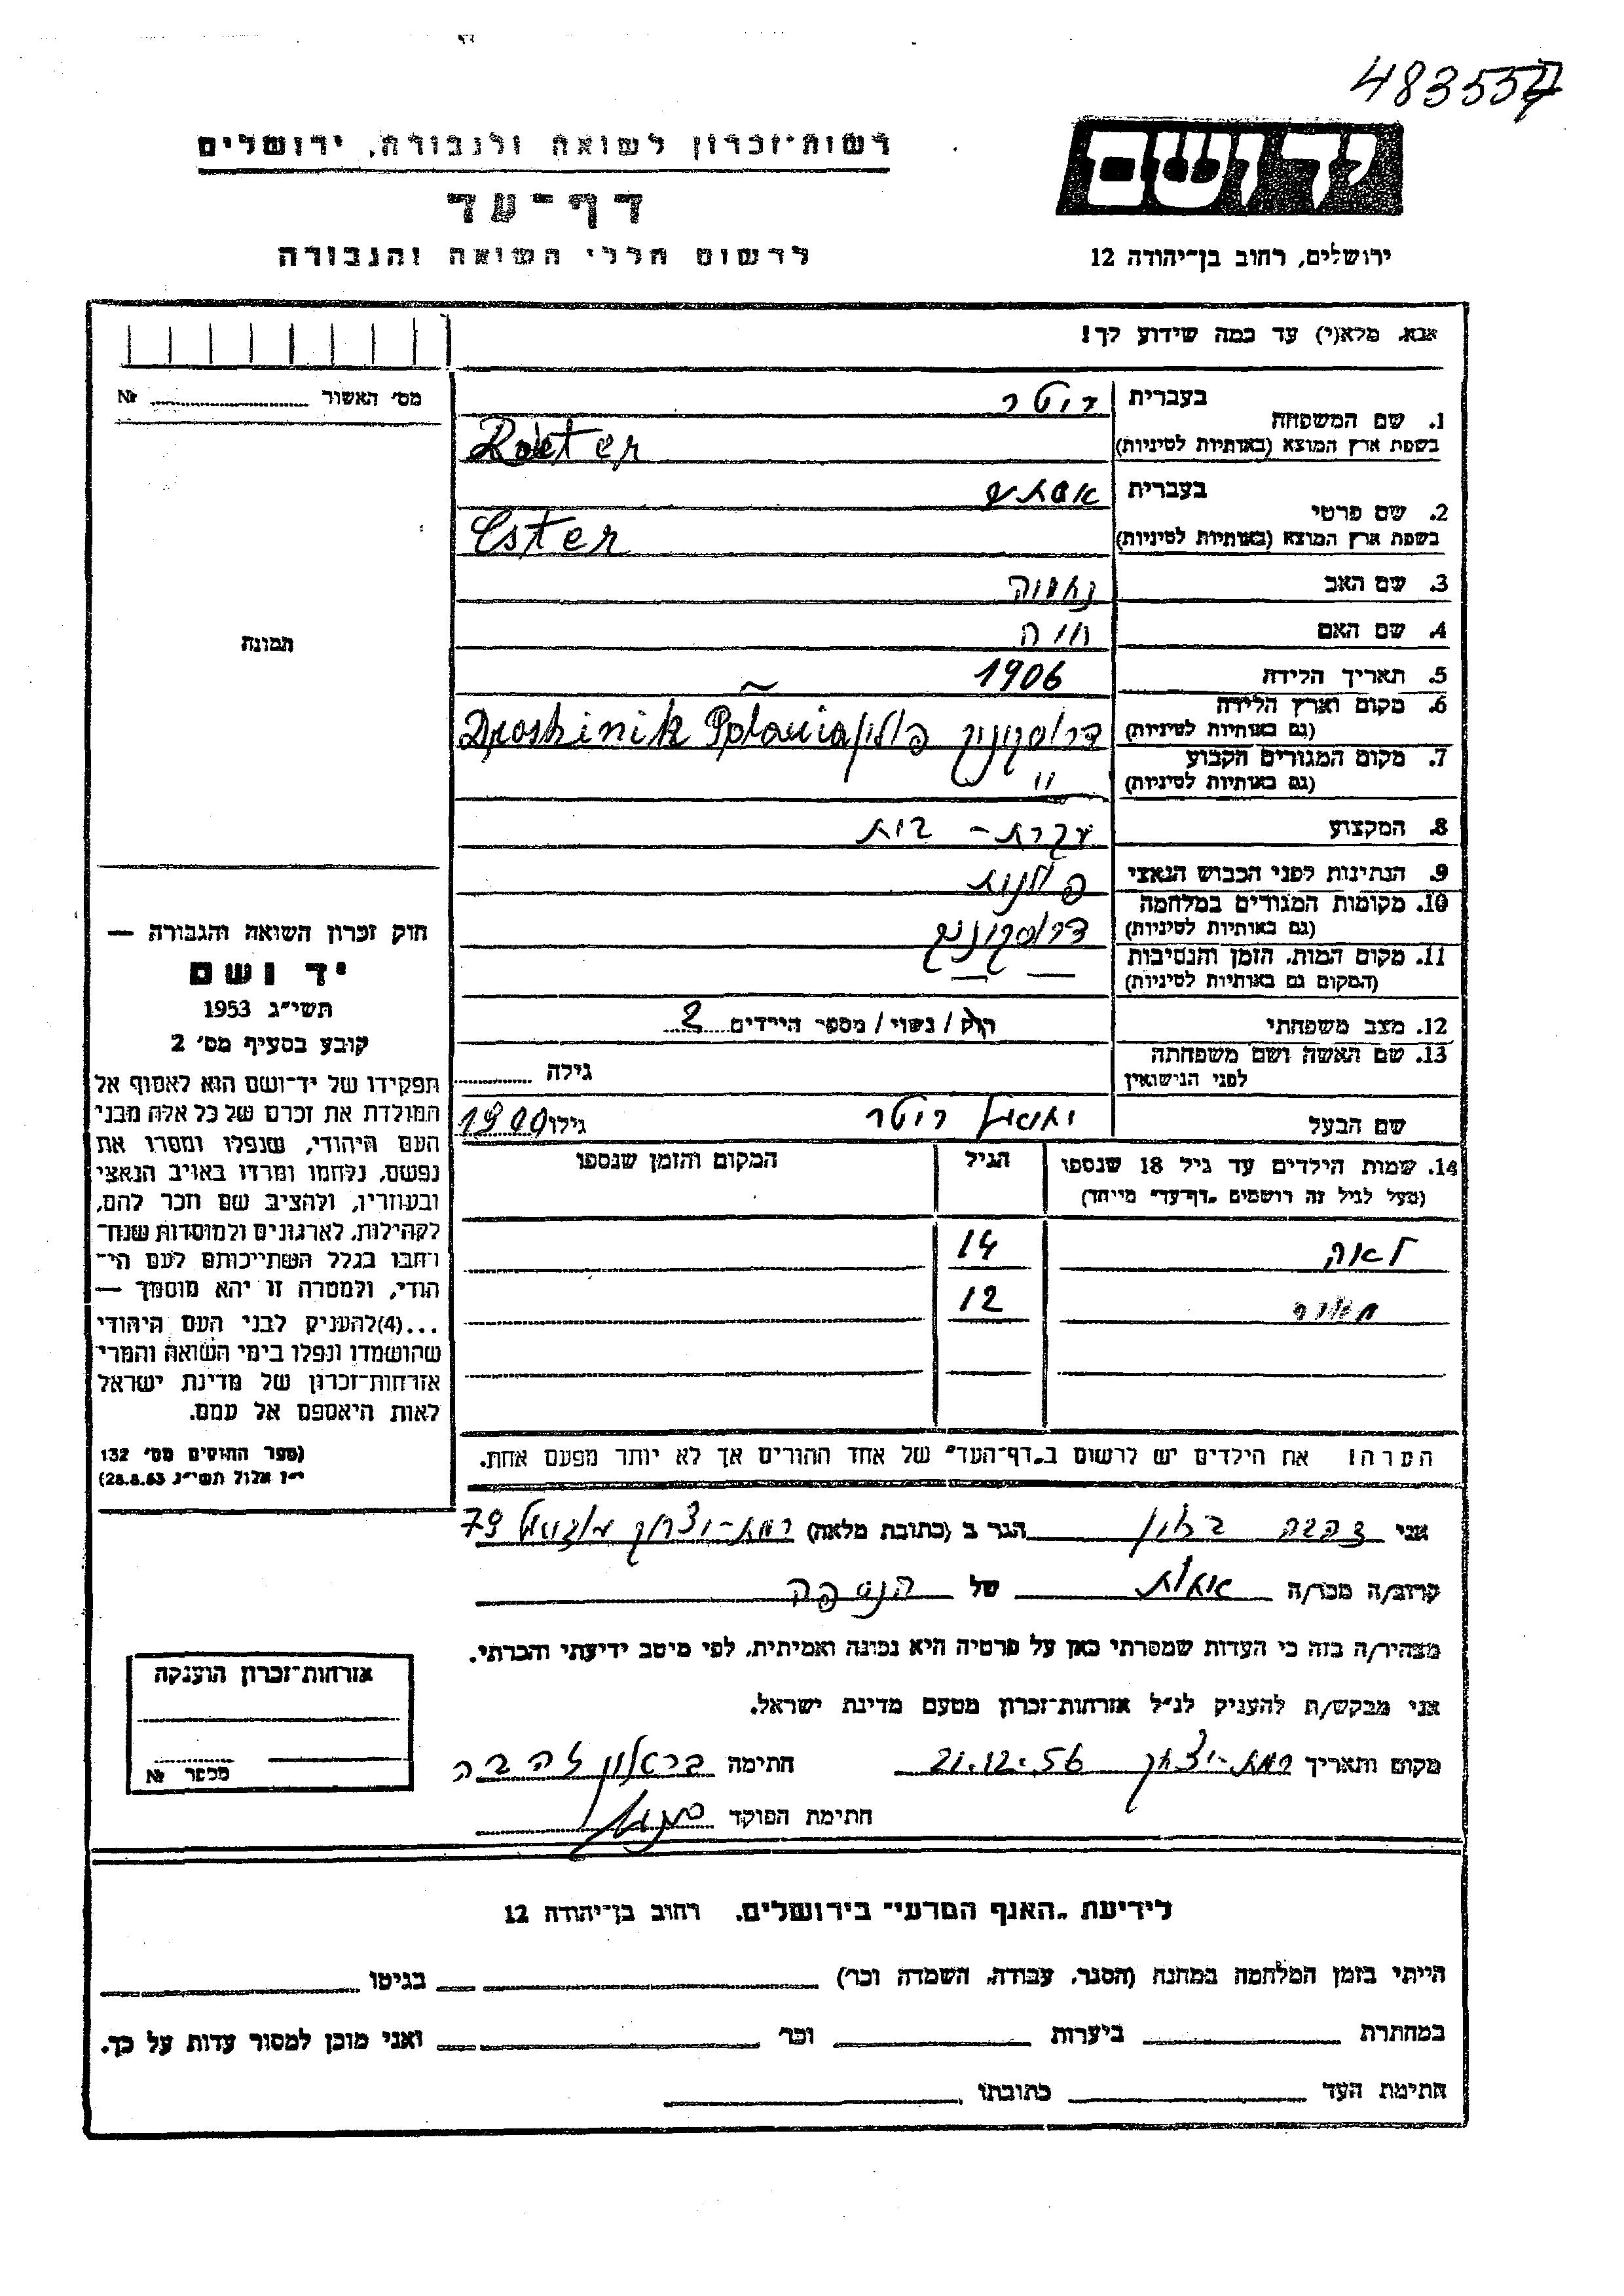 483557
רשות־זכרון לשואה ולגבורה, ירושלים
דף־עד
לרשום חללי השואה והגבורה
יד ושם
ירושלים, רחוב בן־יהודה 12
אנא, מלא(י) עד כמה שידוע לך!
מס׳ האשור № 
1. שם המשפחה
בעברית רוטר
בשפת ארץ המוצא (באותיות לטיניות) Roter
2. שם פרטי
בעברית אסתר
בשפת ארץ המוצא (באותיות לטיניות) Ester
3. שם האב נחמיה
4. שם האם חיה
5. תאריך הלידה 1906
6. מקום וארץ הלידה
(גם באותיות לטיניות) דרוסקיניק פולין Droskinik Polania
7. מקום המגורים הקבוע
(גם באותיות לטיניות) "
8. המקצוע עקרת-בית
9. הנתינות לפני הכבוש הנאצי פולנית
10. מקומות המגורים במלחמה
(גם באותיות לטיניות) דרוסקיניק
11. מקום המות, הזמן והנסיבות
(המקום גם באותיות לטיניות) — —
12. מצב משפחתי רווק/נשוי/מספר הילדים 2
13. שם האשה ושם משפחתה
לפני הנישואין גילה
שם הבעל רוטר גילו 1900
14. שמות הילדים עד גיל 18 שנספו הגיל המקום והזמן שנספו
(מעל לגיל זה רושמים „דף־עד״ מיוחד)
לאה 14
12
הערה! את הילדים יש לרשום ב„דף־העד״ של אחד ההורים אך לא יותר מפעם אחת.
תמונה
חוק זכרון השואה והגבורה —
יד ושם
תשי״ג 1953
קובע בסעיף מס׳ 2
תפקידו של יד־ושם הוא לאסוף אל
המולדת את זכרם של כל אלה מבני
העם היהודי, שנפלו ומסרו את
נפשם, נלחמו ומרדו באויב הנאצי
ובעוזריו, ולהציב שם וזכר להם,
לקהילות, לארגונים ולמוסדות שנח־
רבו בגלל השתייכותם לעם הי־
הודי, ולמטרה זו יהא מוסמך —
...(4)להעניק לבני העם היהודי
שהושמדו ונפלו בימי השואה והמרי
אזרחות־זכרון של מדינת ישראל
לאות היאספם אל עמם.
(ספר החוקים מס׳ 132
י״ז אלול תשי״ג 28.8.53)
אני זהבה בראון הגר ב (כתובת מלאה) רמת-יצחק 79
קרוב/ה מכר/ה אחות של הנספה
מצהיר/ה בזה כי העדות שמסרתי כאן על פרטיה היא נכונה ואמיתית, לפי מיטב ידיעתי והכרתי.
אני מבקש/ת להעניק לנ״ל אזרחות־זכרון מטעם מדינת ישראל.
מקום ותאריך רמת-יצחק 21.12.56 חתימה בראון זהבה
חתימת הפוקד
אזרחות־זכרון הוענקה
מספר №
לידיעת „האגף המדעי״ בירושלים, רחוב בן־יהודה 12
הייתי בזמן המלחמה במחנה (הסגר, עבודה, השמדה וכו׳) בגיטו
במחתרת ביערות וכו׳ ואני מוכן למסור עדות על כך.
חתימת העד כתובתו